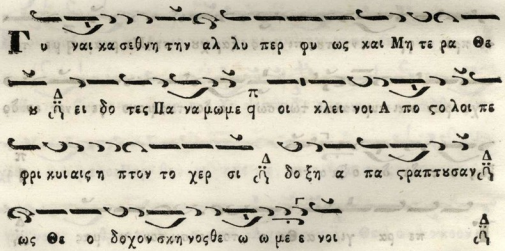 Γυ ναι κα σε θνη την αλ λυ περ φυ ως και Μη τε ρα Θε
ȣ Δ ει δο τες Πα να μω με π q οι κλει νοι Α πο ϛο λοι πε
φρι κυι αις η πτον το χερ σι Δ δο ξη α πα ϛραπτȣσαν Δ
ως Θε ο δοχον σκηνοσθε ω ω με ε νοι Δ